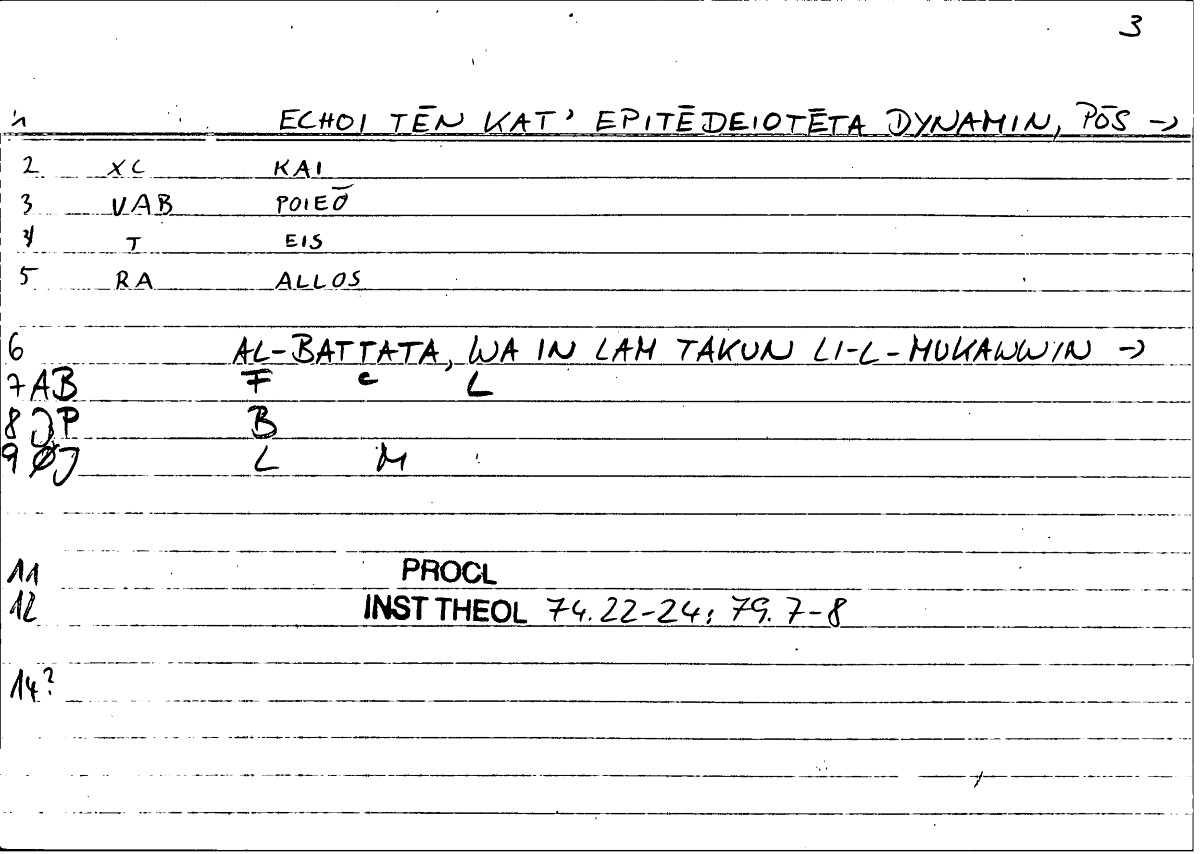 3
1 ECHOI TĒN KAT' EPITĒDEIOTĒTA DYNAMIN, PŌS →
2 XC KAI
3 VAB POIEŌ
4 T EIS
5 RA ALLOS
6 AL-BATTATA, WA IN LAM TAKUN LI-L-MUKAWWIN →
7 AB F C L
8 JP B
9 ØJ L M
11 PROCL
12 INST THEOL 74.22-24; 79.7-8
14?